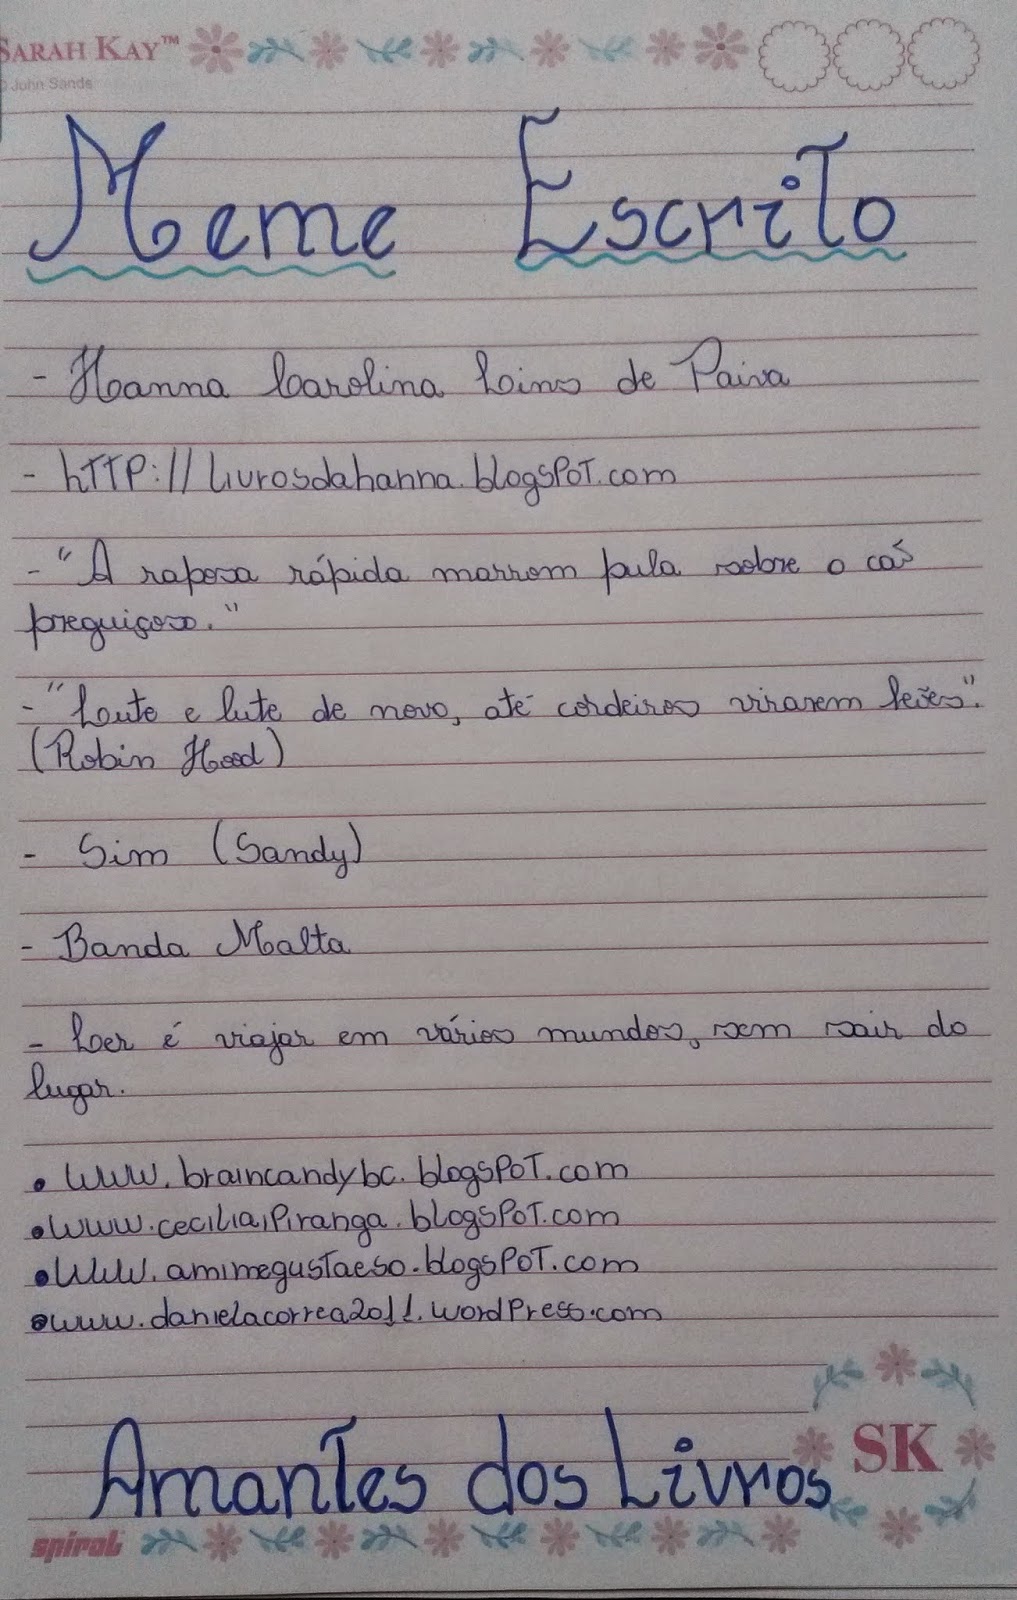 SARAH KAY™
© John Sands
Meme Escrito
- Hanna Carolina Lins de Paiva
- hTTP://livrosdahanna.blogspot.com
- "A raposa rápida marrom pula sobre o cão
preguiçoso."
- "Lute e lute de novo, até cordeiros virarem leões".
(Robin Hood)
- Sim (Sandy)
- Banda Malta
- Ler é viajar em vários mundos, sem sair do
lugar.
• www.braincandybc.blogspot.com
• www.ceciliaipiranga.blogspot.com
• www.amimegustaeso.blogspot.com
• www.danielacorrea2011.wordpress.com
SK
Amantes dos Livros
spiral